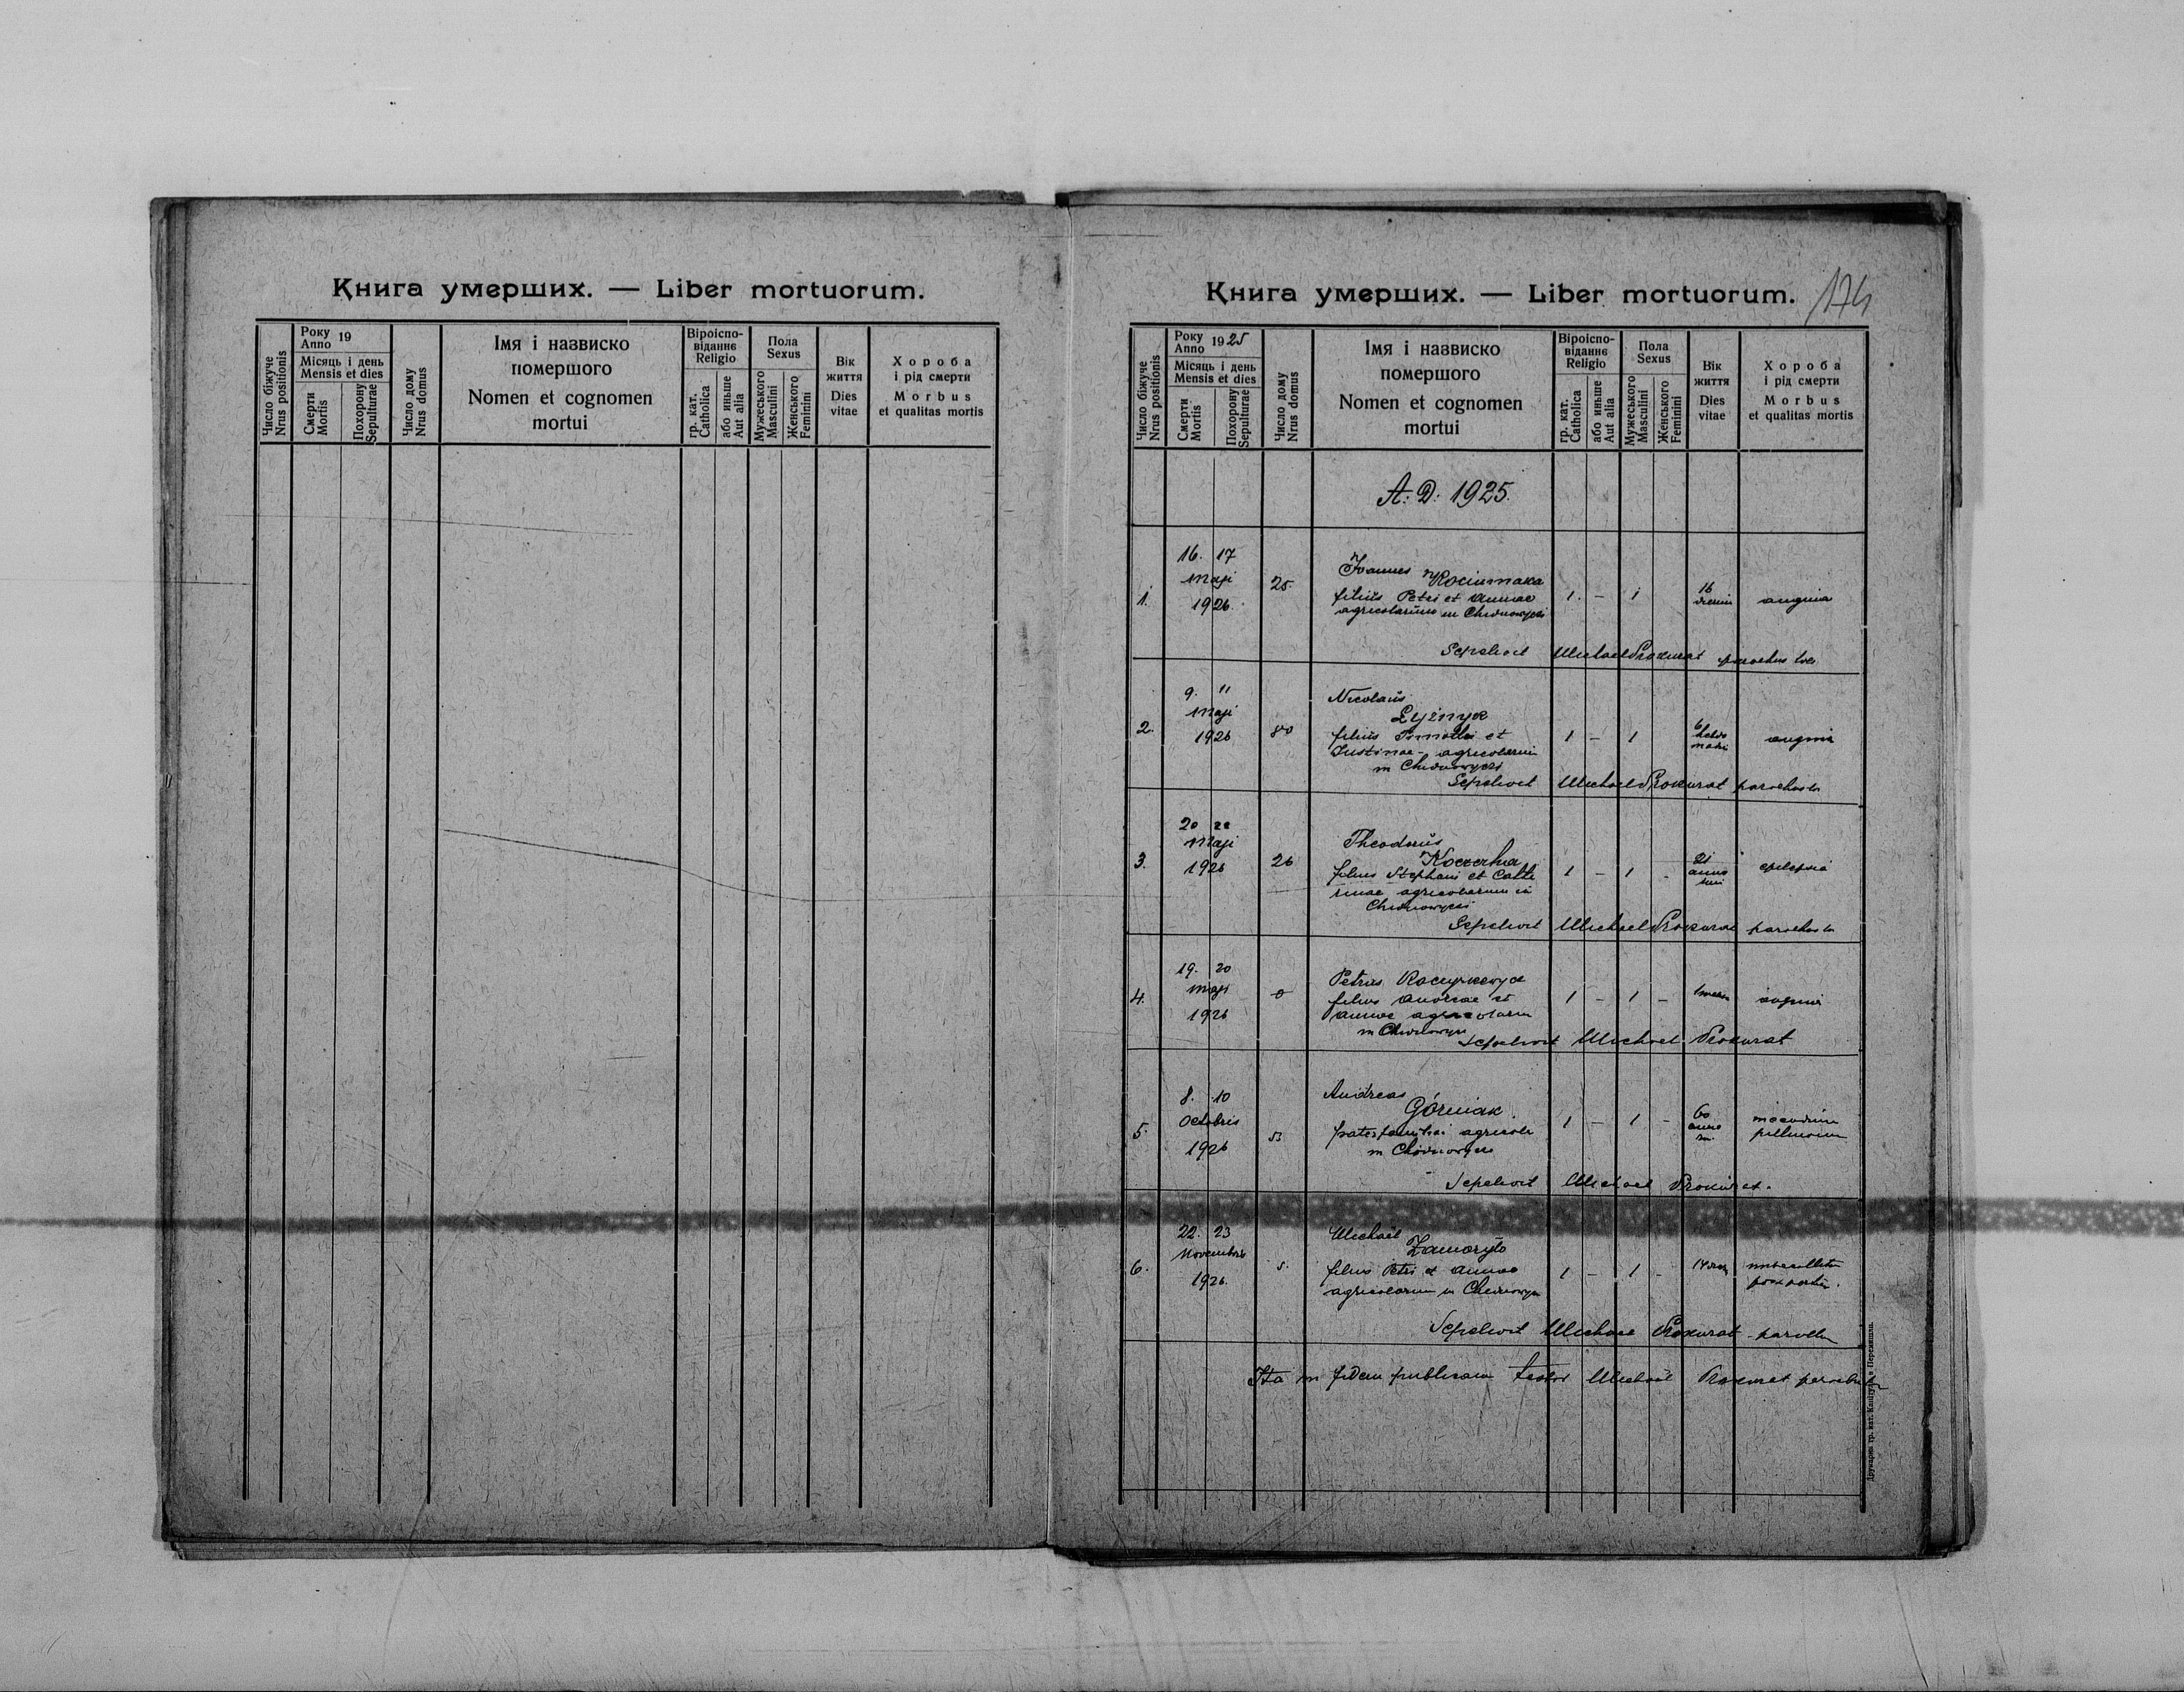 Книга умерших. — Liber mortuorum.
Число біжуче
Nrus positionis
Року
Anno 19
Місяць і день
Mensis et dies
Смерти
Mortis
Похорону
Sepulturae
Число дому
Nrus domus
Імя і назвиско
помершого
Nomen et cognomen
mortui
Віроіспо-
віданнє
Religio
гр. кат.
Catholica
або иньше
Aut alia
Пола
Sexus
Мужеського
Masculini
Женського
Feminini
Вік
життя
Dies
vitae
Хороба
і рід смерти
Morbus
et qualitas mortis
Книга умерших. — Liber mortuorum.
174
Число біжуче
Nrus positionis
Року
Anno 1925
Місяць і день
Mensis et dies
Смерти
Mortis
Похорону
Sepulturae
Число дому
Nrus domus
Імя і назвиско
помершого
Nomen et cognomen
mortui
Віроіспо-
віданнє
Religio
гр. кат.
Catholica
або иньше
Aut alia
Пола
Sexus
Мужеського
Masculini
Женського
Feminini
Вік
життя
Dies
vitae
Хороба
і рід смерти
Morbus
et qualitas mortis
A: D: 1925.
1. 16. 17 maji 1926. 25.
Joannes
filius Petri et Annae
agricolarum in
1. – 1 16 angina
Sepelivit Michael Prokurat parochus
2. 9. 11 maji 1926
Nicolaus
Łyżnyk
filius et
Justinae - agricolarum
in
1 – 1 6 angina
Sepelivit Michael Prokurat
3. 20 22 maji 1926 26
Theodorus
Koczerha
filius Stephani et Cathe
rinae agricolarum in
1 – 1 - 21 epilepsia
Sepelivit Michael Prokurat
4. 19. 20 maji 1926
Petrus
filius Andreae et
Annae agricolarum
in
1 – 1 – angina
Sepelivit Michael Prokurat
5. 8. 10 Octobris 1926 53
Andreas
Górniak
pater familiae agricola
in
1 – 1 – 60
Sepelivit Michael Prokurat.
6. 22. 23 Novembris 1926. 5.
Michael
filius Petri et Annae
agricolarum in
1 – 1 –
Sepelivit Michael Prokurat
Ita in fidem publicam testor Michael Prokurat